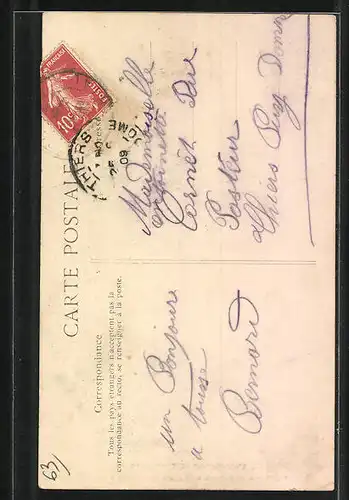 CARTE POSTALE
Correspondance
Tous les pays étrangers n'acceptent pas la
correspondance au recto, se renseigner à la poste.
un Bonjour
a tousse
Bernard
10c
POSTES
THIERS
09
DOME
Mademoiselle
Antoinette
Cornet Rue
Pasteur
thiers Puy Dome
63